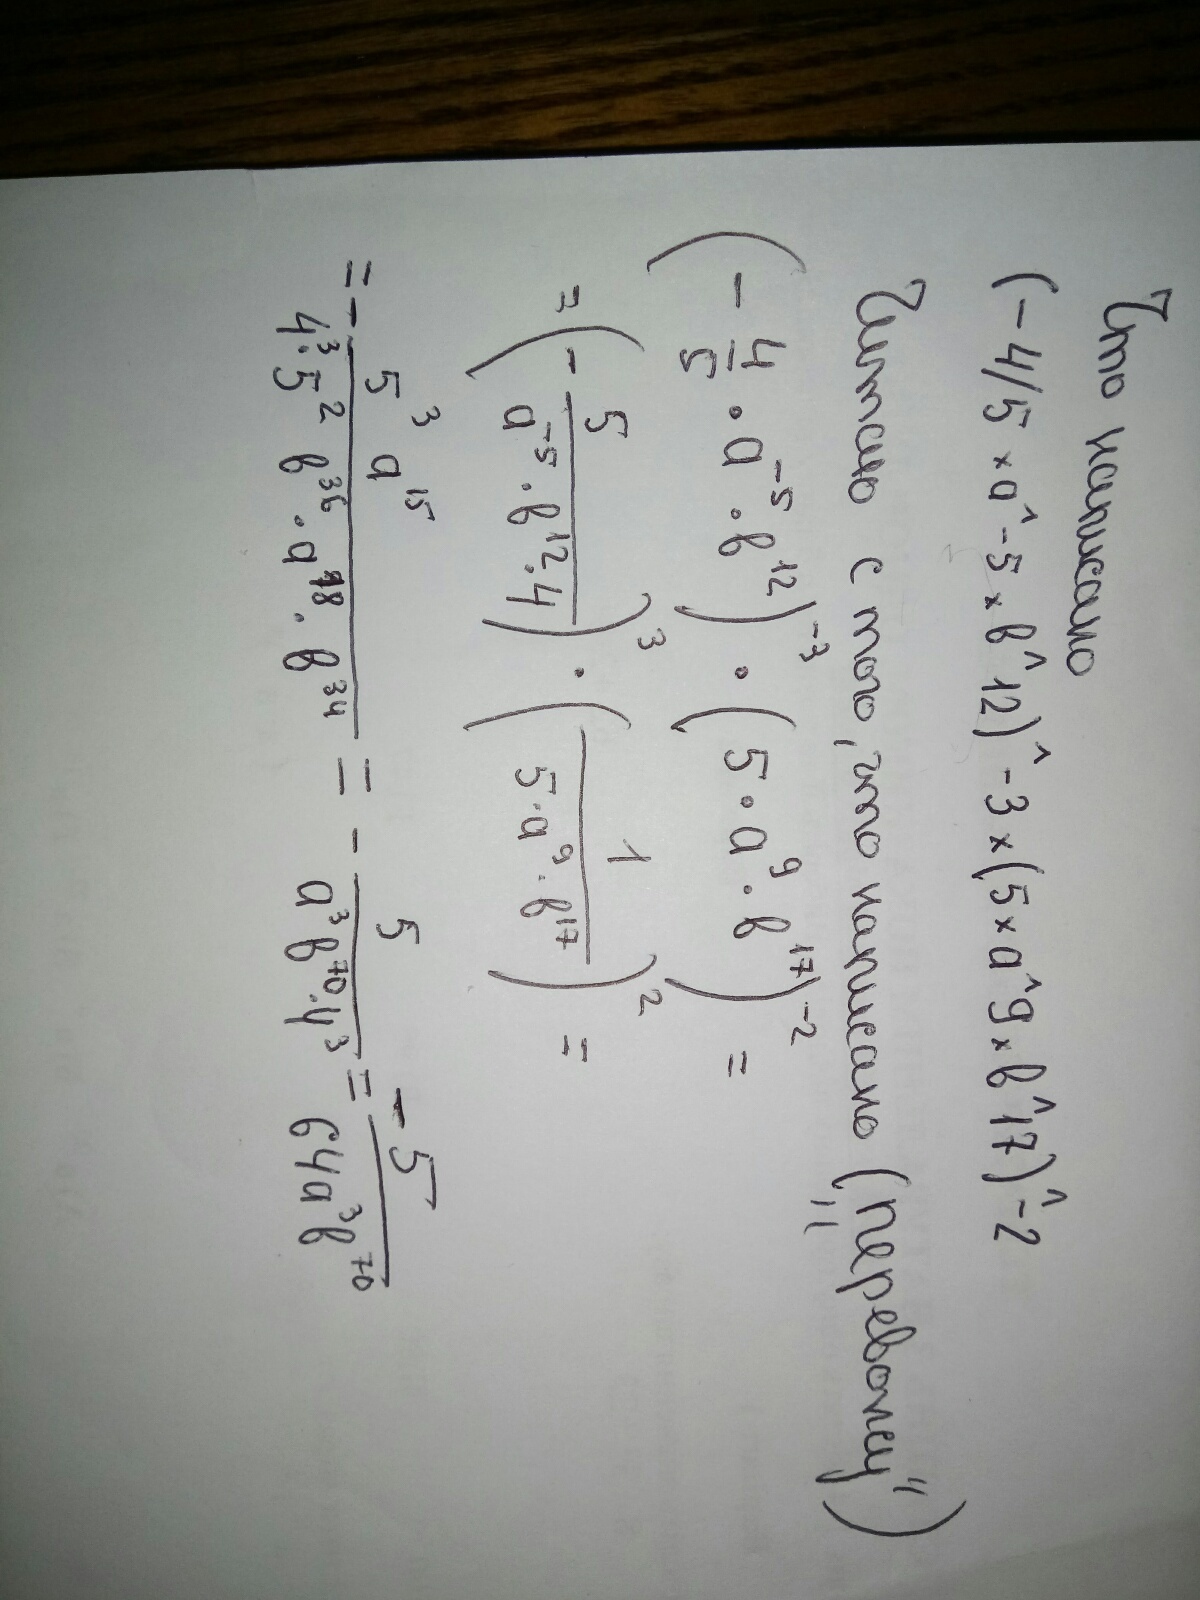 Что написано
(-4/5 × a^-5 × b^12)^-3 × (5 × a^9 × b^17)^-2
Читаю с того, что написано („перевожу")
(- 4/5 · a⁻⁵ · b¹²)⁻³ · (5 · a⁹ · b¹⁷)⁻² =
= (- 5/(a⁻⁵ · b¹² · 4))³ · (1/(5 · a⁹ · b¹⁷))² =
= - (5³ a¹⁵)/(4³ · 5² b³⁶ · a¹⁸ · b³⁴) = - 5/(a³ b⁷⁰ · 4³) = -5/(64a³b⁷⁰)